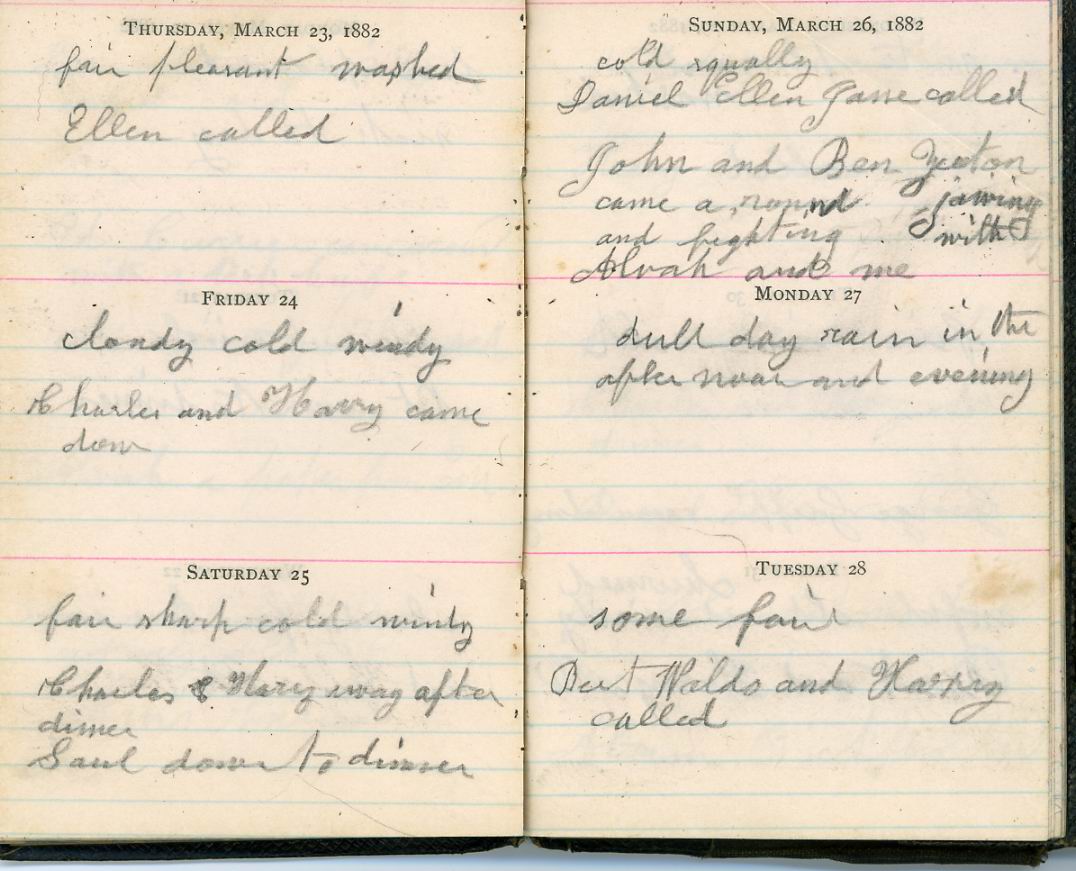 THURSDAY, MARCH 23, 1882
fair pleasant washed
Ellen called
FRIDAY 24
cloudy cold windy
Charles and Harry came
down
SATURDAY 25
fair sharp cold windy
Charles & Harry away after
dinner
Saul down to dinner
SUNDAY, MARCH 26, 1882
cold squally
Daniel Ellen Jane called
John and Ben
came a round jawing
and fighting with
Alvah and me
MONDAY 27
dull day rain in the
after noon and evening
TUESDAY 28
some fair
Bert Waldo and Harry
called